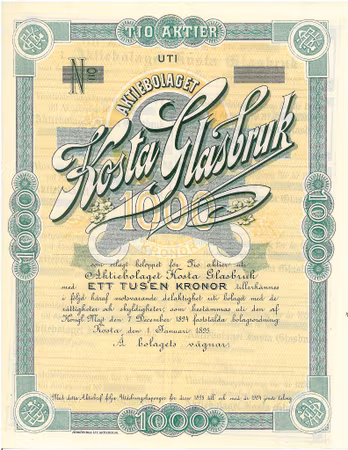 TIO AKTIER
UTI
No
AKTIEBOLAGET
Kosta Glasbruk
1000
som erlagt beloppet för Tio aktier uti
Aktiebolaget Kosta Glasbruk
med ETT TUSEN KRONOR tillerkännes
i följd häraf motsvarande delaktighet uti bolaget med de
rättigheter och skyldigheter, som bestämmas uti den af
Kongl. Majt den 7 December 1894 fastställda bolagsordning
Kosta den 1 Januari 1895.
Å bolagets vägnar
1000
1000
Med detta Aktiebref följa Utdelningskuponger för åren 1895 till och med år 1904 jemte talong
1000